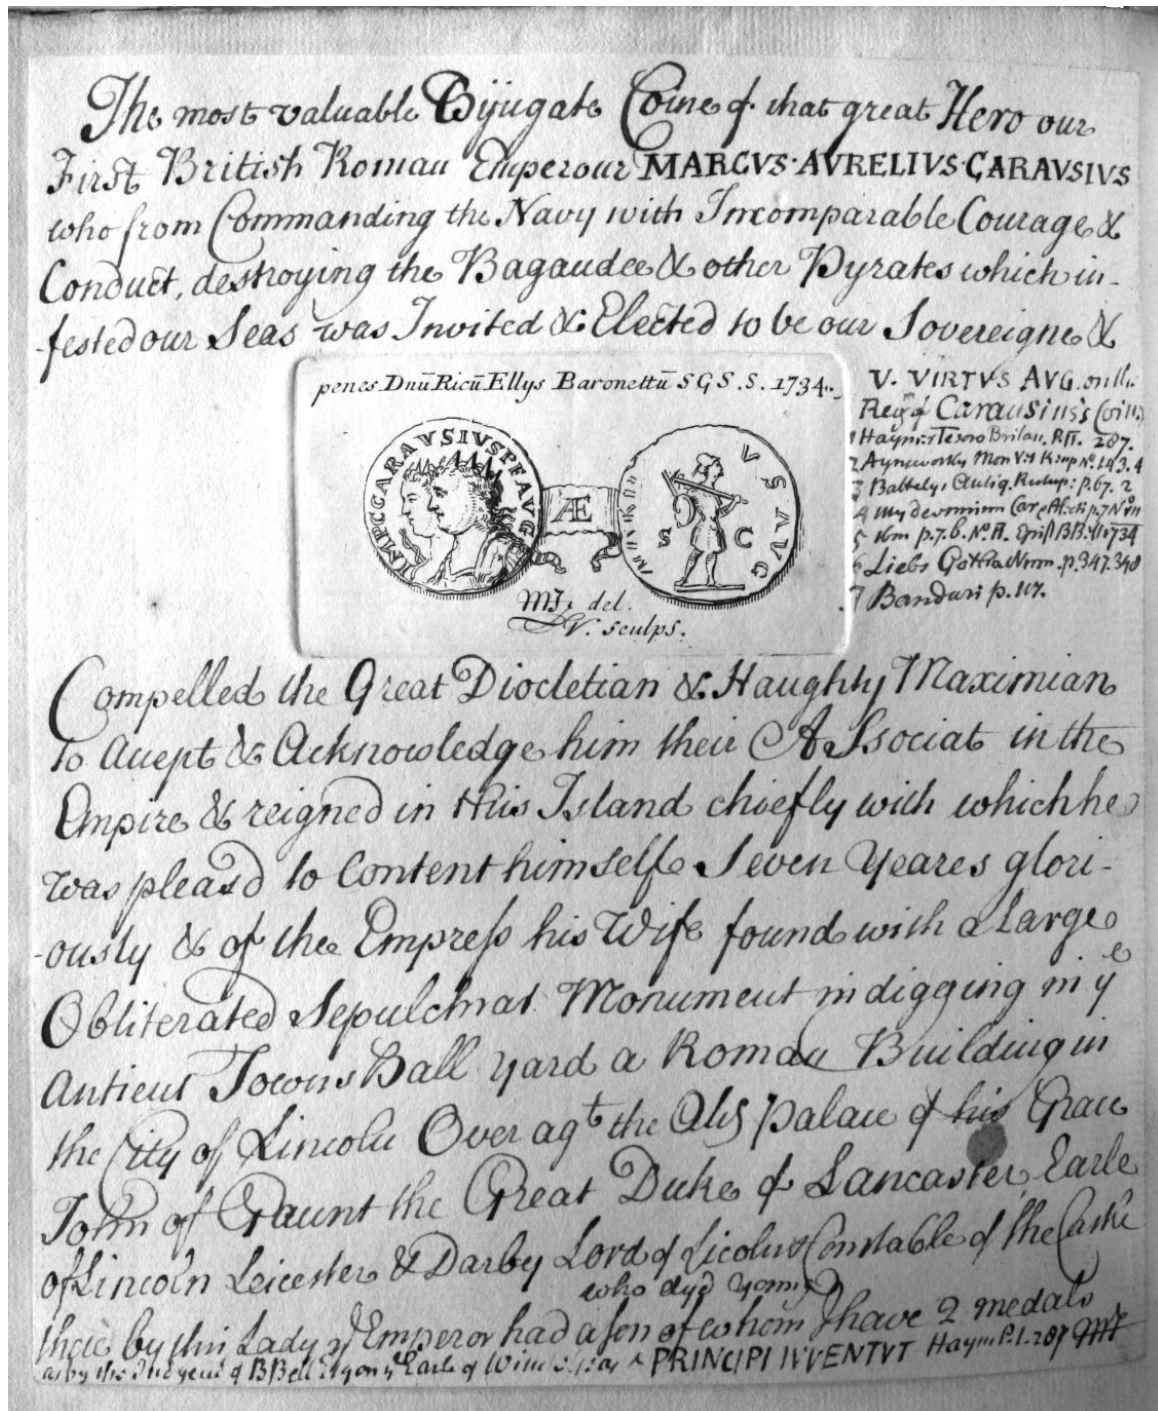 The most valuable Bijugate Coine of that great Hero our
First British Roman Emperour MARCVS·AVRELIVS·CARAVSIVS
who from Commanding the Navy with Incomparable Courage &
Conduct, destroying the Bagaudee & other Pyrates which in-
-fested our Seas was Invited & Elected to be our Sovereigne &
penes Dnū Ricū Ellys Baronettū SGS.S. 1734.
IMP C CARAVSIVS PF AVG
Æ
VSAVG
S C
MJ. del.
V. sculps.
V. VIRTVS AVG. on the
Carausius's Coin
1 Hayms Tesoro Britan. P.II. 287.
2 Aynsworths Mon Vet Kemp No. 143.4
3 Battely, Antiq. Rutup: p.67.2
4 my
5 Ibm p.7.6. No. II. Epist BB. 1734
6 Liebs Gotha Num. p.347.348
7 Banduri p.117.
Compelled the Great Diocletian & Haughty Maximian
to accept & Acknowledge him their Associat in the
Empire & reigned in this Island chiefly with which he
was pleasd to Content himselfe Seven Yeares glori-
-ously & of the Empress his Wife found with a Large
Obliterated Sepulchral Monument in digging in ye
Antient Towns Ball yard a Roman Building in
the City of Lincoln Over agt the Old Palace of his Grace
John of Gaunt the Great Duke of Lancaster, Earle
of Lincoln Leicester & Darby Lord of Licolns Constable of the Castle
who dyed young
there by this Lady ye Emperor had a son of whom I have 2 medals
as by this BBell Earle of PRINCIPI IVVENTVT Haym P.I. 287 MJ